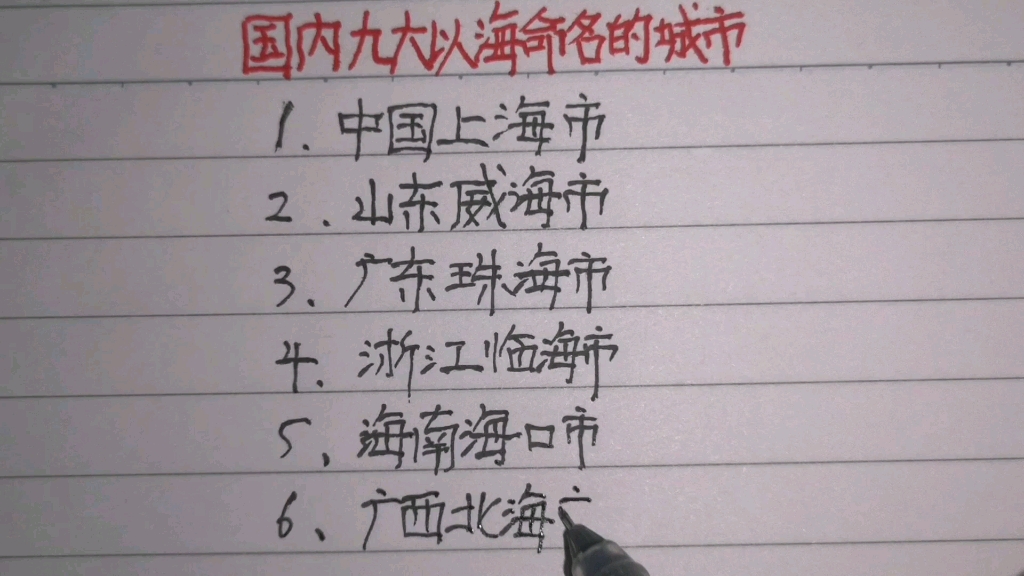 国内九大以海命名的城市
1. 中国上海市
2. 山东威海市
3、广东珠海市
4. 浙江临海市
5、海南海口市
6、广西北海